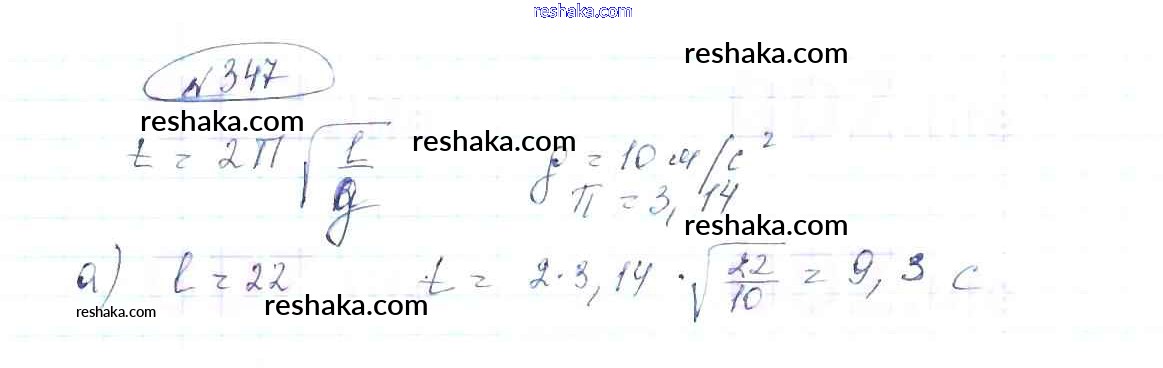 reshaka.com
reshaka.com
№347
reshaka.com
reshaka.com
t = 2π √(l/g)   g = 10 м/с²
π = 3,14
reshaka.com
а) l = 22   t = 2·3,14 · √(22/10) = 9,3 с
reshaka.com
reshaka.com